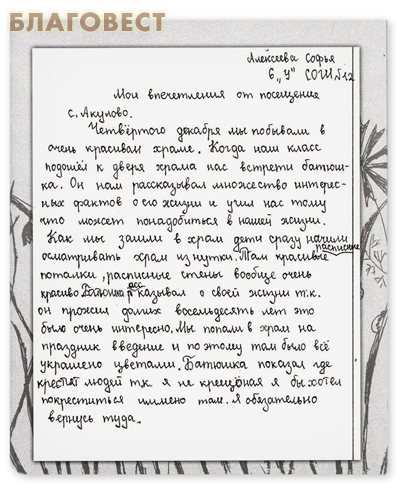 БЛАГОВЕСТ
Алексеева Софья
6 „У" СОШ №12
Мои впечетления от посещение
с. Акулово.
Четвёртого декабря мы побывали в
очень красивам храме. Когда наш класс
подошёл к дверя храма нас встрети батюш-
ка. Он нам рассказывал множество интерес-
ных фактов о его жизни и учил нас тому
что может понадобиться в нашей жизни.
Как мы зашли в храм дети сразу начили
расписные
осматривать храм из нутки. Там красивые
поталки, расписные стены вообще очень
красиво. Батюшка рассказывал о своей жизни т.к.
он прожил долгих восемьдесять лет это
было очень интересно. Мы попали в храм на
праздник введение и по этому там было всё
украшено цветами. Батюшка показал где
крестят людей т.к. я не крещёная я бы хотел
покреститься иммено там. Я обязательно
вернусь туда.